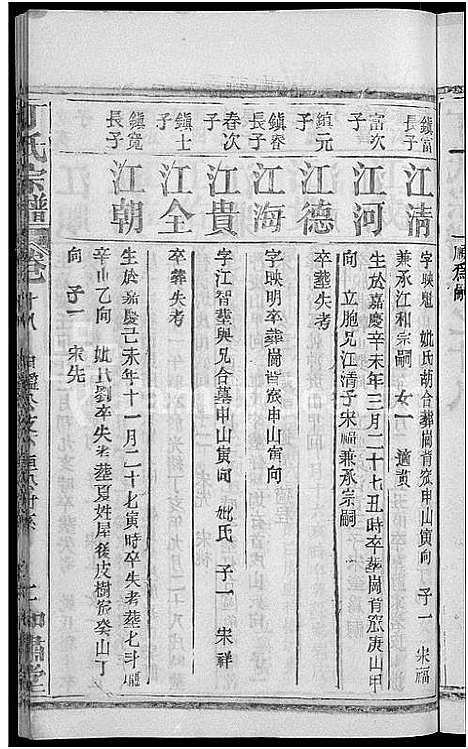 鎮富長子
江清
字映魁 妣氏胡合葬崗背窊申山寅向 子一 宋福
兼承江和宗嗣 女一 適黄
富次子
江河
生於嘉慶辛未年三月二十七丑時卒葬崗背窊庚山甲
向 立胞兄江清子宋福兼承宗嗣
鎮元子
江德
卒葬失考
鎮春長子
江海
字映明卒葬崗背窊申山寅向
春次子
江貴
字江智葬與兄合墓申山寅向 妣氏 子一 宋祥
鎮士子
江全
卒葬失考
鎮寬長子
江朝
生於嘉慶己未年十一月二十七寅時卒失考葬七斗壠
辛山乙向 妣氏劉卒失考葬夏姓屋後皮樹窊癸山丁
向 子一 宋先
丁氏宗譜